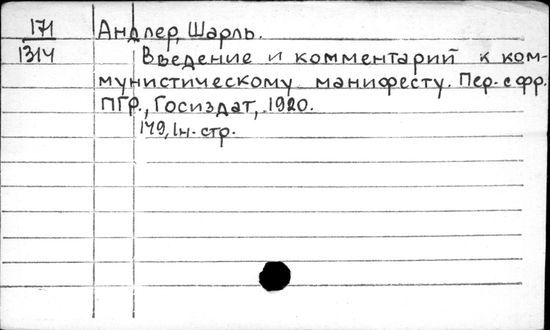 171 Андлер, Шарль.
1314 Введение и комментарий к ком-
мунистическому манифесту. Пер. с фр.
ПГр., Госиздат, 1920.
179, 1н. стр.